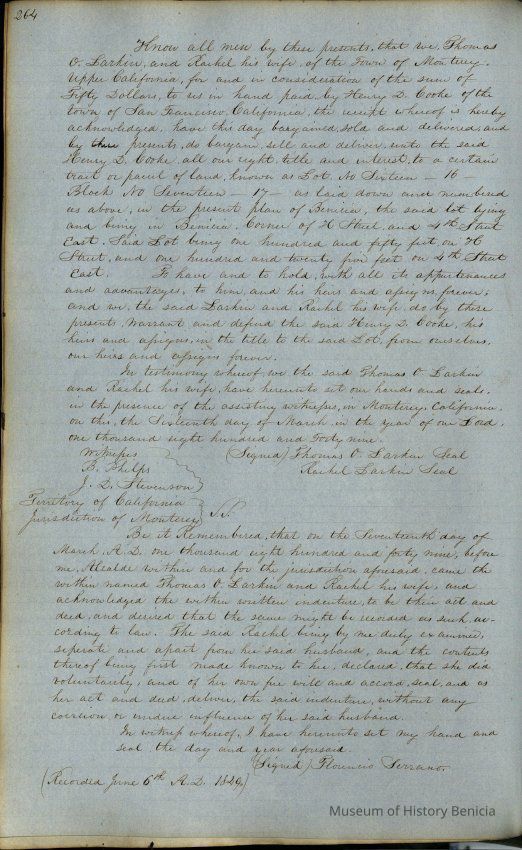 264
Know all men by these presents, that we, Thomas
O. Larkin, and Rachel his wife, of the Town of Monterey.
Upper California, for and in consideration of the sum of
Fifty Dollars, to us in hand paid by Henry D. Cooke of the
town of San Francisco, California, the receipt whereof is hereby
acknowledged, have this day bargained, sold and delivered, and
by these presents, do bargain, sell and deliver, unto the said
Henry D. Cooke, all our right, title and interest, to a certain
tract or parcel of land, known as Lot No Sixteen — 16 —
Block No Seventeen — 17 — as laid down and numbered
as above, in the present plan of Benicia, the said lot lying
and being in Benicia, Corner of H Street and 4th Street
East. Said Lot being one hundred and fifty feet on H
Street, and one hundred and twenty five feet on 4th Street
East. To have and to hold, with all its appurtenances
and advantages, to him, and his heirs and assigns, forever;
and we, the said Larkin and Rachel his wife, do, by these
presents, warrant and defend the said Henry D. Cooke, his
heirs and assigns, in the title to the said Lot, from ourselves,
our heirs and assigns forever.
In testimony whereof, we the said Thomas O. Larkin
and Rachel his wife, have hereunto set our hands and seals,
in the presence of the assisting witnesses, in Monterey, California,
on this, the Sixteenth day of March, in the year of our Lord,
one thousand eight hundred and Forty nine.
Witnesses (Signed) Thomas O. Larkin Seal
B. Phelps Rachel Larkin Seal
J. D. Stevenson
Territory of California
Jurisdiction of Monterey S.S.
Be it Remembered, that on the Seventeenth day of
March, A.D. one thousand eight hundred and forty nine, before
me, Alcalde within and for the jurisdiction aforesaid, came the
within named Thomas O. Larkin and Rachel his wife, and
acknowledged the within written indenture, to be their act and
deed, and desired that the same might be recorded as such, ac-
cording to law. The said Rachel being by me duly examined,
seperate and apart from her said husband, and the contents
thereof being first made known to her, declared, that she did
voluntarily, and of her own free will and accord, seal, and as
her act and deed, deliver, the said indenture, without any
coersion or undue influence of her said husband.
In witness whereof, I have hereunto set my hand and
seal, the day and year aforesaid.
(Signed) Florencio Serrano.
(Recorded June 6th A.D. 1849)
Museum of History Benicia